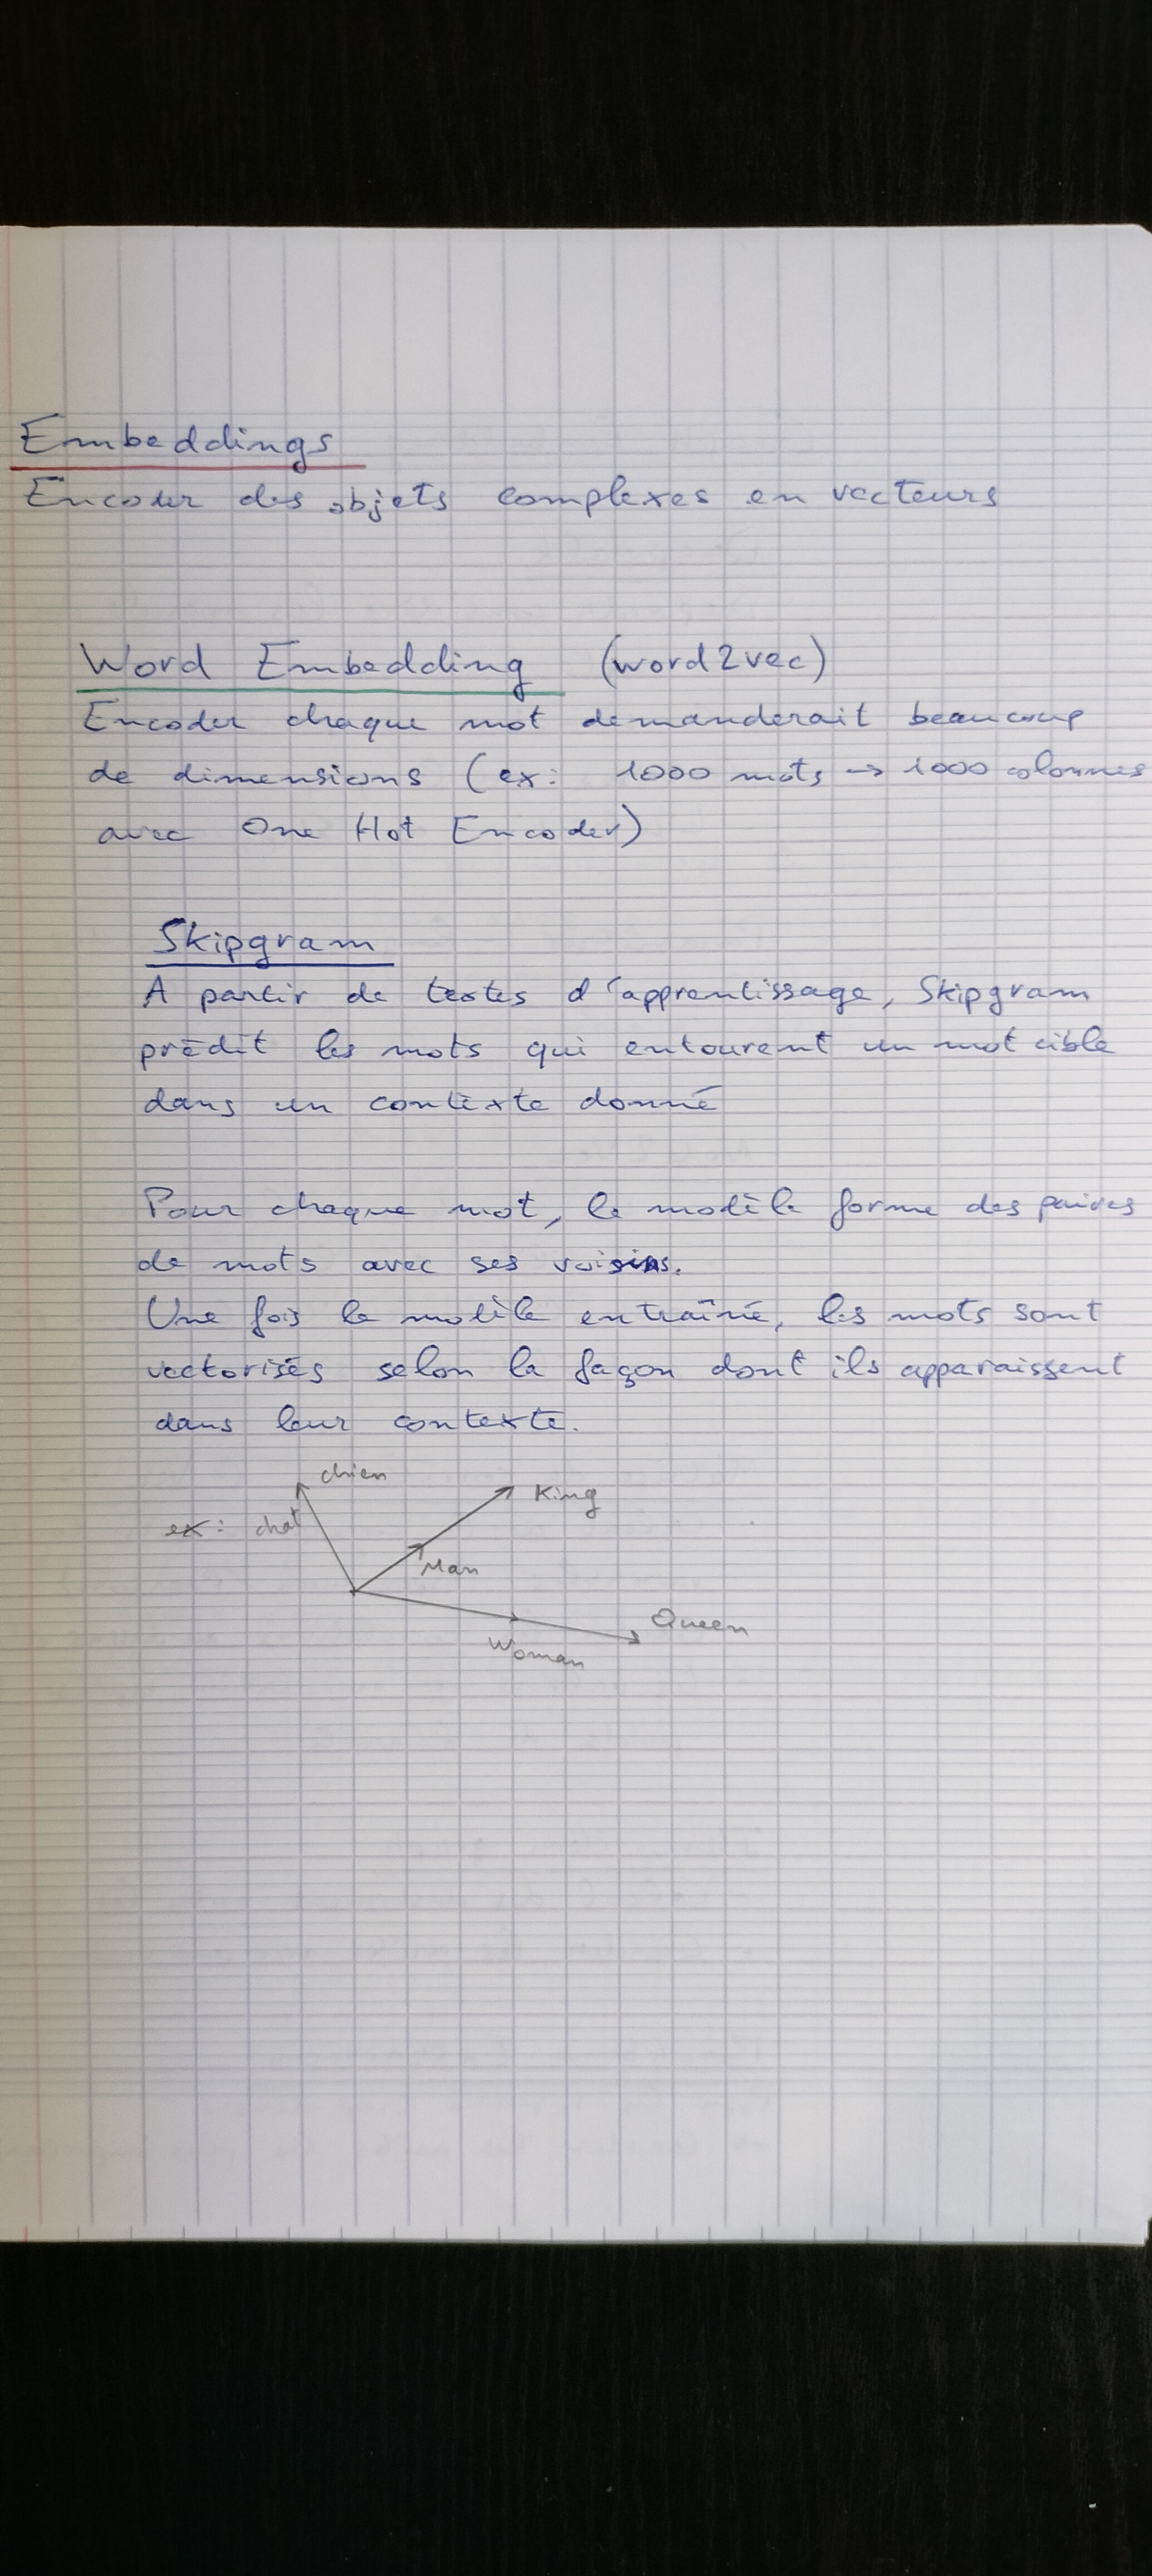 Embeddings
Encoder des objets complexes en vecteurs
Word Embedding (word2vec)
Encoder chaque mot demanderait beaucoup
de dimensions (ex: 1000 mots → 1000 colonnes
avec One Hot Encoder)
Skipgram
A partir de textes d'apprentissage, Skipgram
prédit les mots qui entourent un mot cible
dans un contexte donné
Pour chaque mot, le modèle forme des paires
de mots avec ses voisins.
Une fois le modèle entraîné, les mots sont
vectorisés selon la façon dont ils apparaissent
dans leur contexte.
chien
King
ex: chat
Man
Queen
Woman